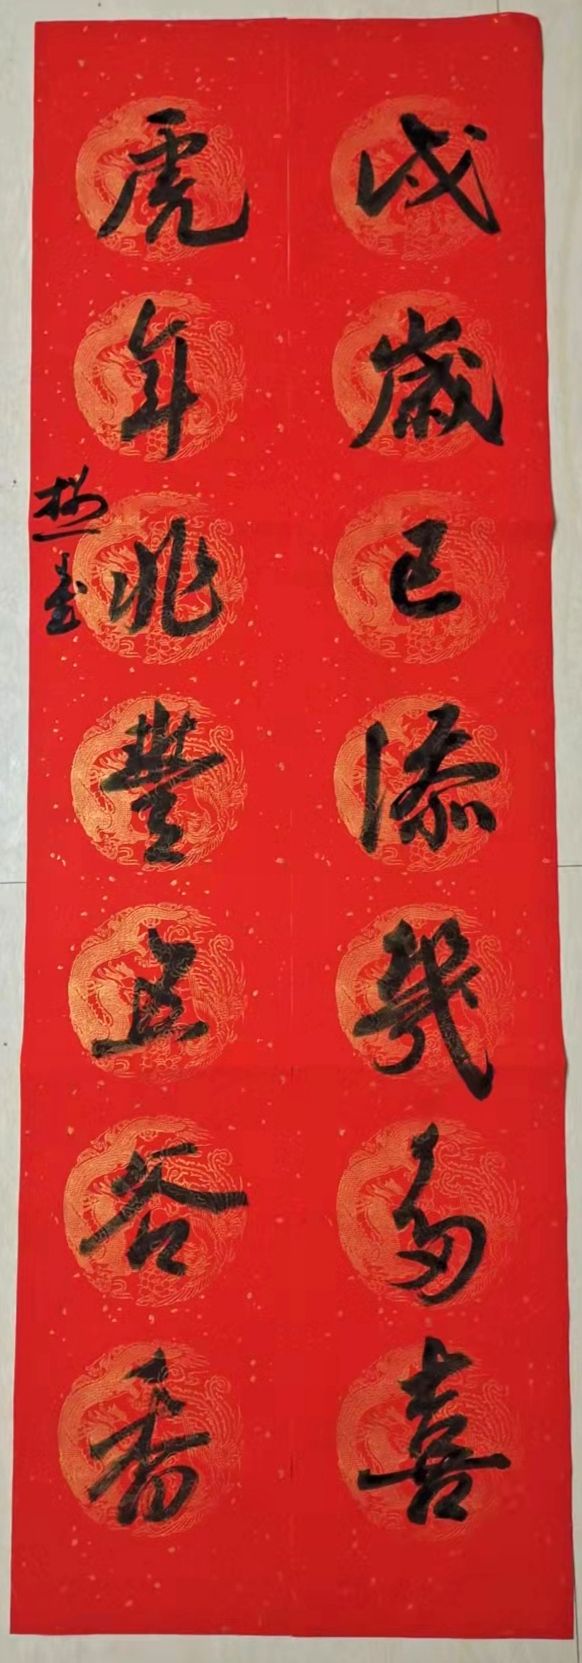 戌歲已添幾多喜
虎年兆豐五谷香